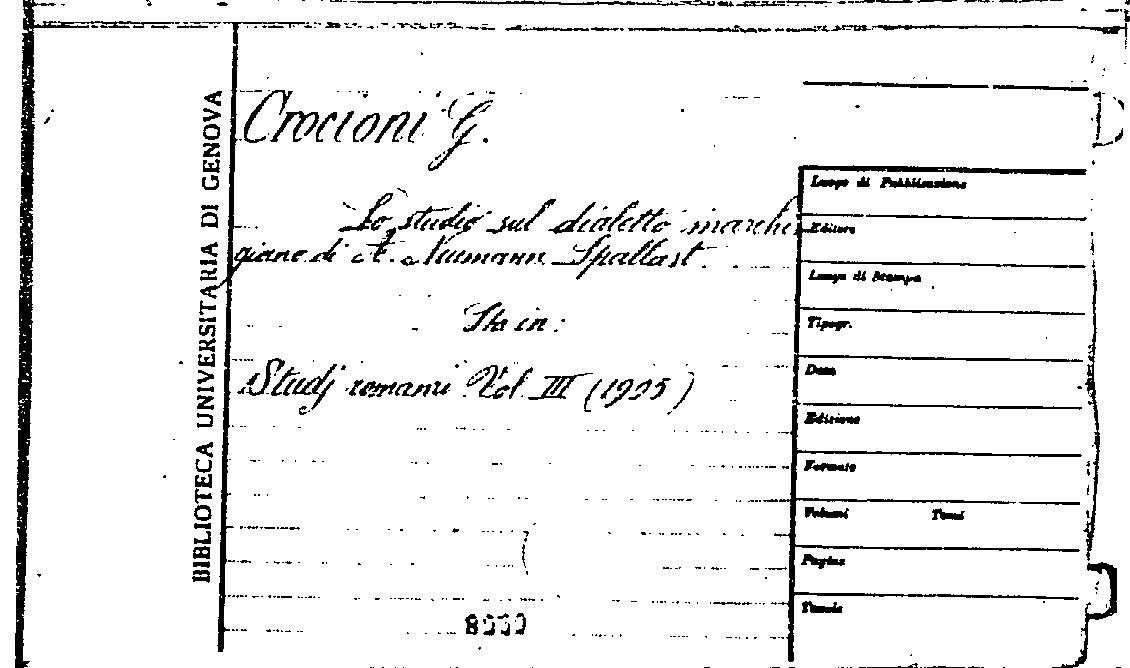 BIBLIOTECA UNIVERSITARIA DI GENOVA
Crocioni G.
Lo studio sul dialetto marchi-
giano di A. Neumann Spallart.
Sta in:
Studj romanzi Vol. III (1905)
Luogo di Pubblicazione
Editore
Luogo di Stampa
Tipogr.
Data
Edizione
Formato
Volumi Tomi
Pagine
Tavole